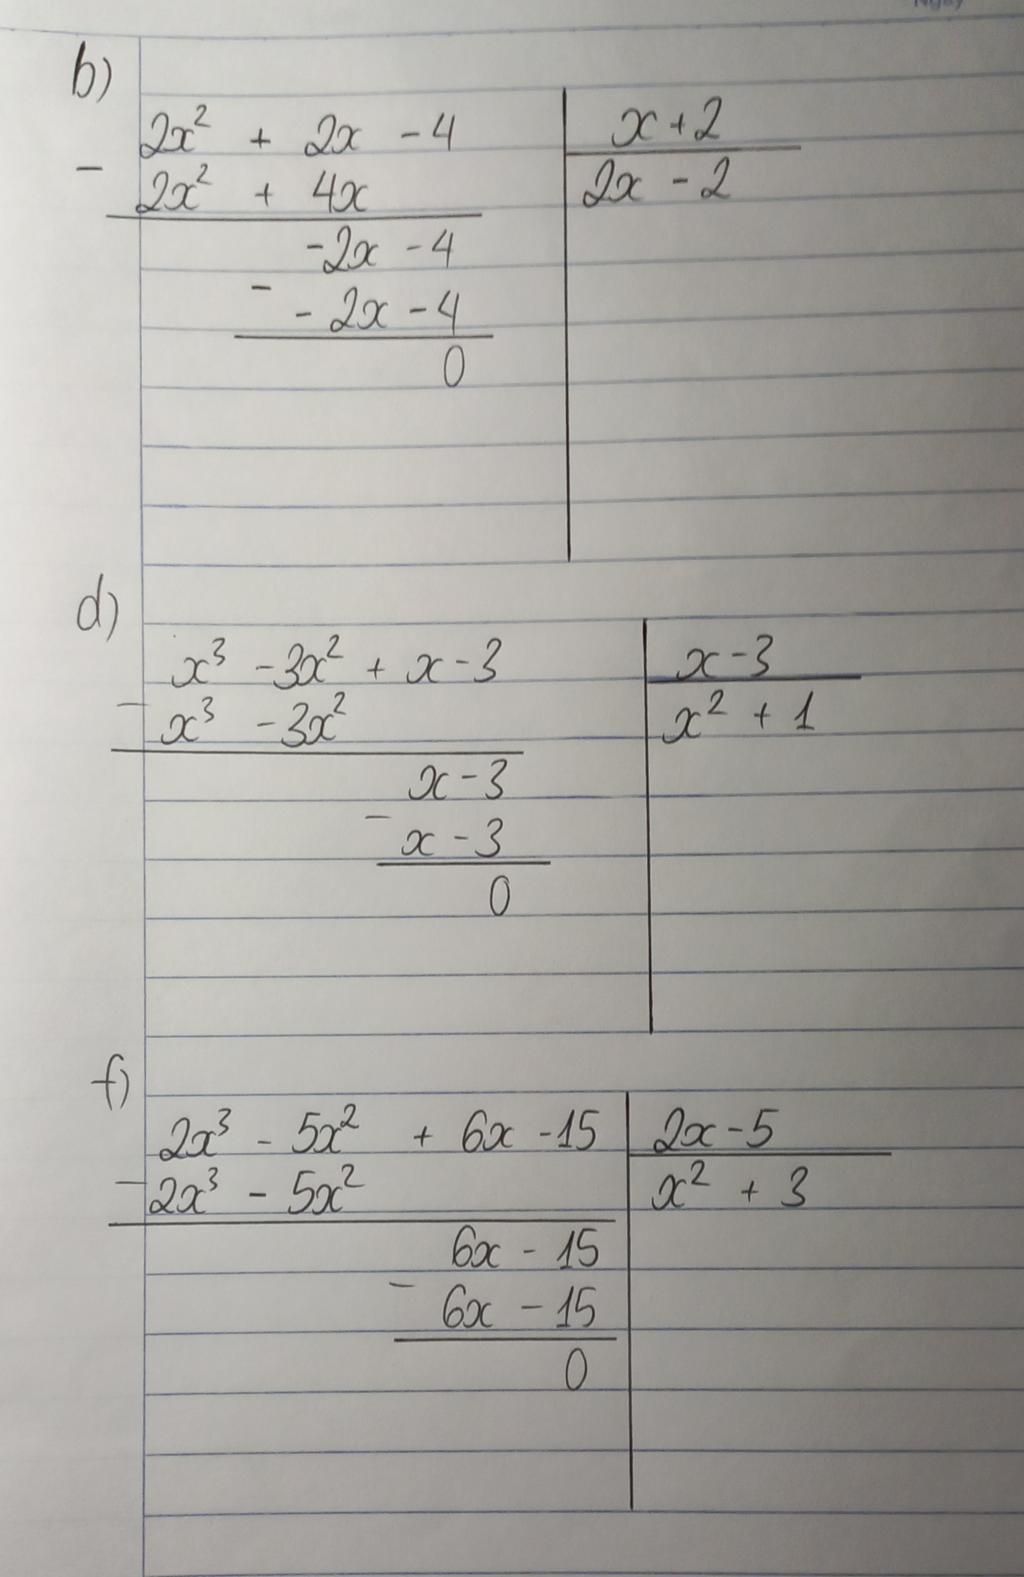 Ngày
b)
2x² + 2x - 4 | x + 2
- 2x² + 4x | 2x - 2
-2x - 4
- - 2x - 4
0
d)
x³ - 3x² + x - 3 | x - 3
- x³ - 3x² | x² + 1
x - 3
- x - 3
0
f)
2x³ - 5x² + 6x - 15 | 2x - 5
- 2x³ - 5x² | x² + 3
6x - 15
- 6x - 15
0